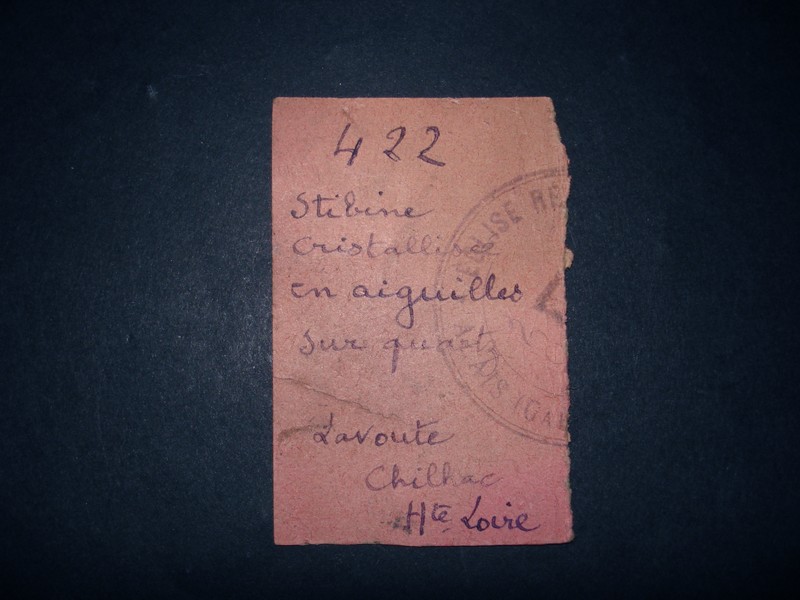 422
Stibine
Cristallisée
en aiguilles
sur quartz
Lavoute
Chilhac
Hte Loire
ÉGLISE RE
AIS (GA